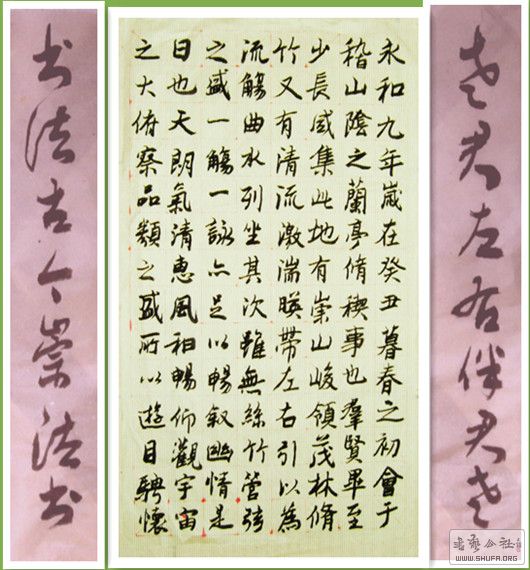 老君左右伴君老
永和九年歲在癸丑暮春之初會于
稽山陰之蘭亭脩稧事也羣賢畢至
少長咸集此地有崇山峻領茂林脩
竹又有清流激湍暎帶左右引以為
流觴曲水列坐其次雖無絲竹管弦
之盛一觴一詠亦足以暢叙幽情是
日也天朗氣清惠風和暢仰觀宇宙
之大俯察品類之盛所以遊目騁懷
书法古今崇法书
WWW.SHUFA.ORG